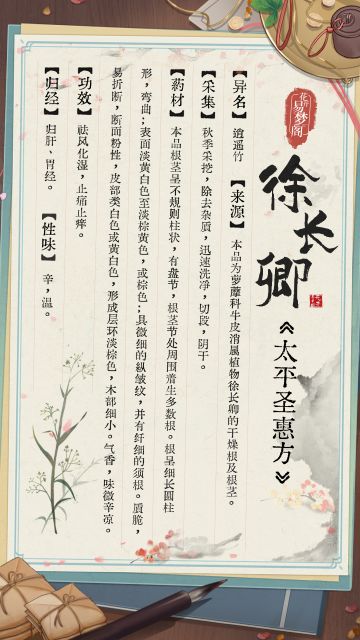 花亦
易梦阁
徐长卿
《太平圣惠方》
【异名】 逍遥竹 【来源】 本品为萝藦科牛皮消属植物徐长卿的干燥根及根茎。
【采集】 秋季采挖，除去杂质，迅速洗净，切段，阴干。
【药材】 本品根茎呈不规则柱状，有盘节，根茎节处周围着生多数根。根呈细长圆柱
形，弯曲；表面淡黄白色至淡棕黄色，或棕色；具微细的纵皱纹，并有纤细的须根。质脆，
易折断，断面粉性，皮部类白色或黄白色，形成层环淡棕色，木部细小。气香，味微辛凉。
【功效】 祛风化湿，止痛止痒。
【归经】 归肝、胃经。 【性味】 辛，温。